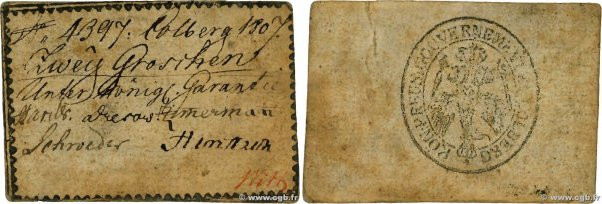 No 4397. Colberg 1807.
Zwey Groschen
Unter Königl. Garantie
Dresow Zimermañ
Schroeder
KÖN. PREUSS. GOUVERNEMENT COLBERG
© www.cgb.fr
www.cgb.fr